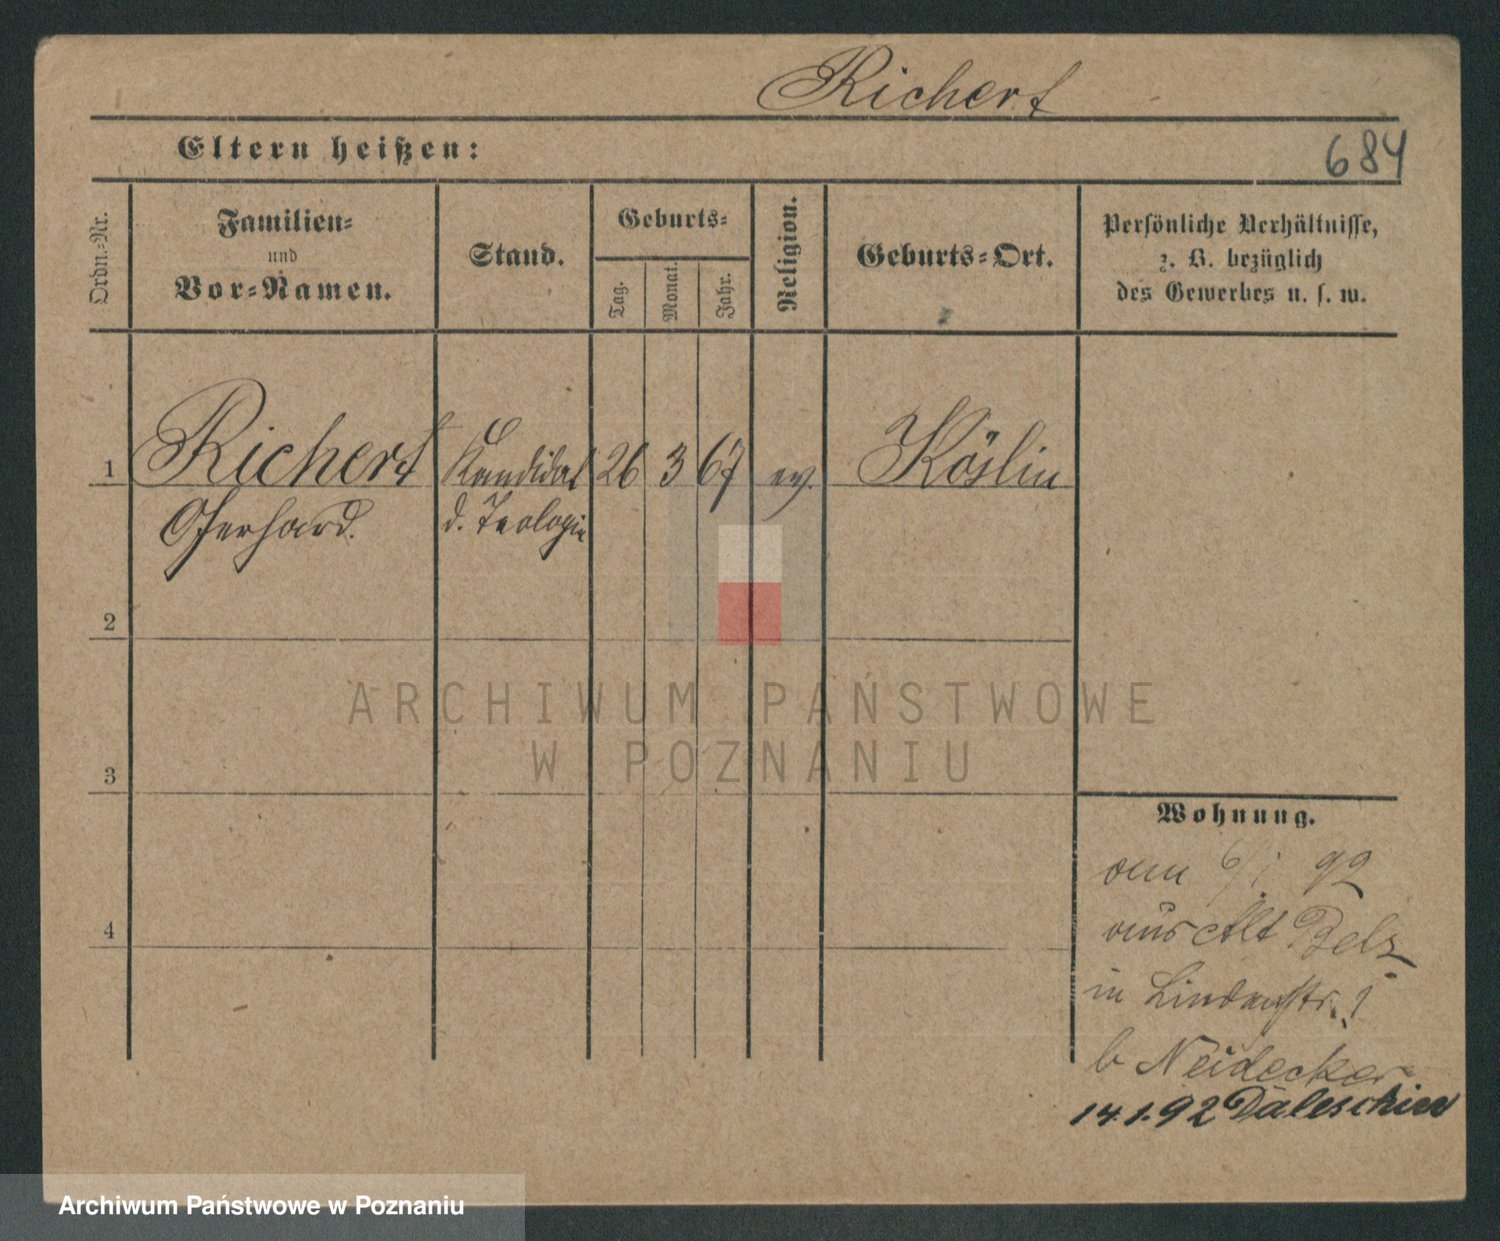 Richert
Eltern heißen:
684
Ordn.-Nr.
Familien-
und
Vor-Namen.
Stand.
Geburts-
Tag.
Monat.
Jahr.
Religion.
Geburts-Ort.
Persönliche Verhältnisse,
z. B. bezüglich
des Gewerbes u. s. w.
1 Richert Kandidat 26 3 67 ev. Köslin
Gerhard. d. Teologie
2
3
4
Wohnung.
am 6/1. 92
aus Alt Belz
in Lindenstr. 1
b Neidecker
14.1.92 Daleschin
ARCHIWUM PAŃSTWOWE
W POZNANIU
Archiwum Państwowe w Poznaniu